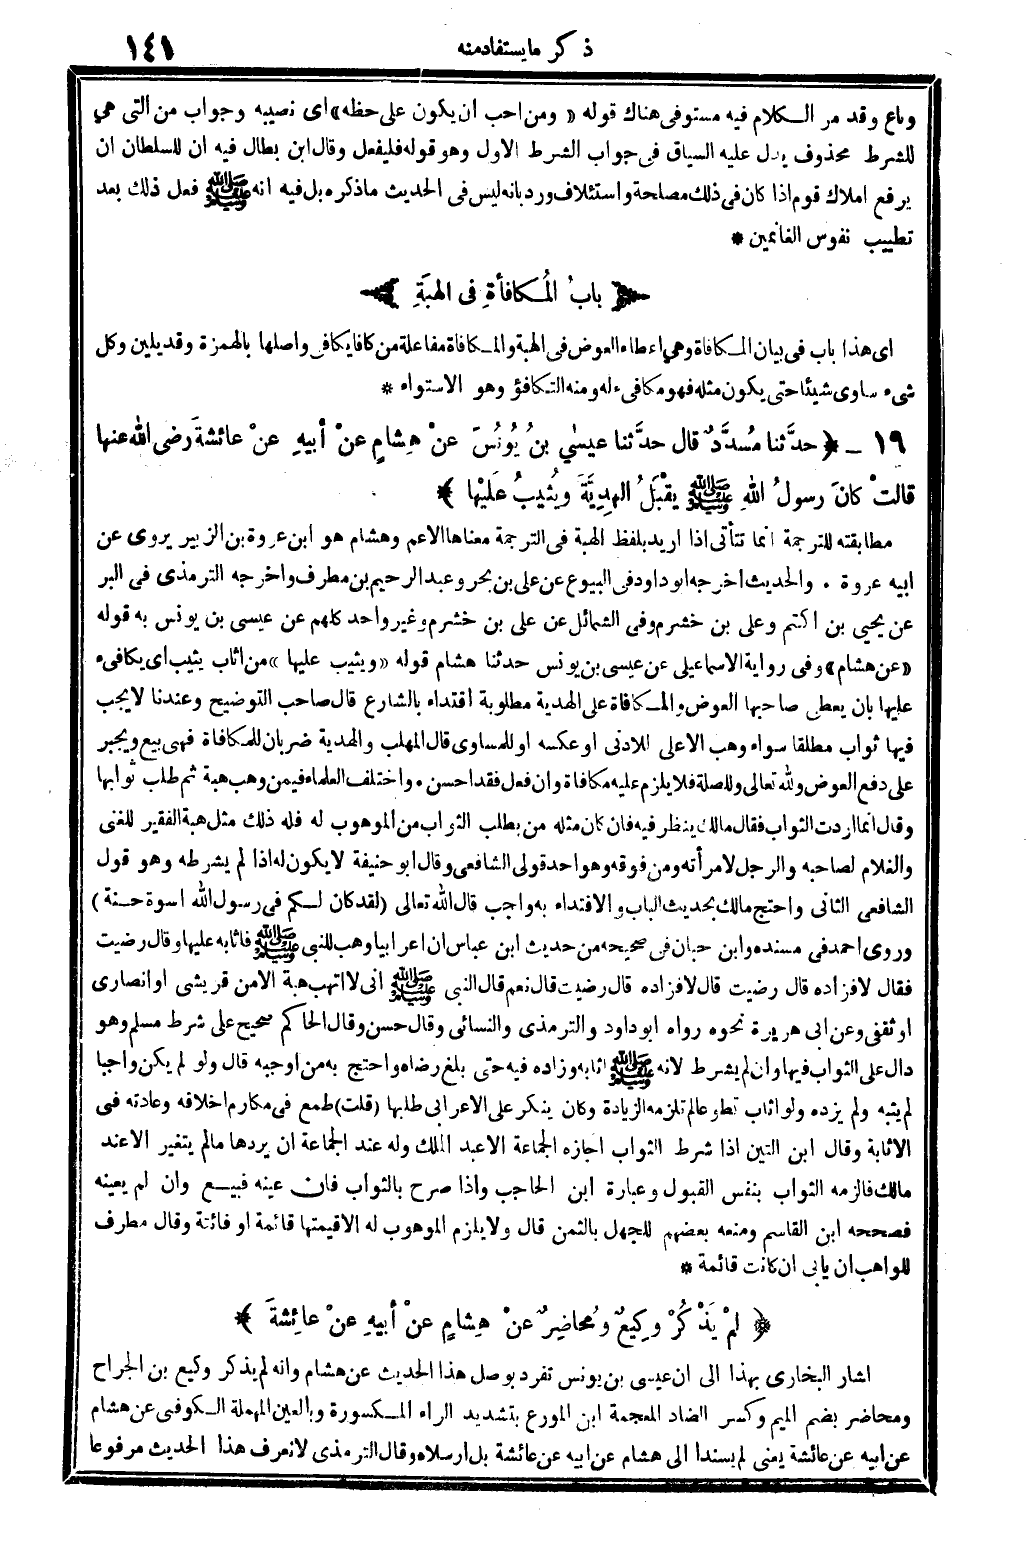 ذكر مايستفادمنه
١٤١
وباع وقد مر الكلام فيه مستوفى هناك قوله « ومن احب ان يكون على حظه» اى نصيبه وجواب من التى هي
للشرط محذوف يدل عليه السياق فى جواب الشرط الاول وهو قوله فليفعل وقال ابن بطال فيه ان للسلطان ان
يرفع املاك قوم اذا كان فى ذلك مصلحة واستئلاف ورد بانه ليس فى الحديث ما ذكره بل فيه انه ﷺ فعل ذلك بعد
تطييب نفوس الغانمين *
﴿ بابُ المُكافأةِ فى الهبَةِ ﴾
اى هذا باب فى بيان المكافاة وهي اعطاء العوض فى الهبة والمكافاة مفاعلة من كافا يكافى واصلها بالهمزة وقد يلين وكل
شىء ساوى شيئا حتى يكون مثله فهو مكافىء له ومنه التكافؤ وهو الاستواء *
١٩ ـ ﴿ حدَّثنا مُسدَّدٌ قال حدَّثنا عيسٰي بنُ يُونُسَ عنْ هِشامٍ عنْ أبيهِ عنْ عائشةَ رضى الله عنها
قالتْ كانَ رسولُ اللهِ ﷺ يقْبَلُ الهدِيَّةَ ويُثِيبُ عَلَيْها ﴾
مطابقته للترجمة انما تتأتى اذا اريد بلفظ الهبة فى الترجمة معناها الاعم وهشام هو ابن عروة بن الزبير يروى عن
ابيه عروة . والحديث اخرجه ابو داود فى البيوع عن على بن بحر وعبد الرحيم بن مطرف واخرجه الترمذى فى البر
عن يحيى بن اكتم وعلى بن خشرم وفى الشمائل عن على بن خشرم وغير واحد كلهم عن عيسى بن يونس به قوله
«عن هشام» وفى رواية الاسماعيلى عن عيسى بن يونس حدثنا هشام قوله «ويثيب عليها » من اثاب يثيب اى يكافىء
عليها بان يعطى صاحبها العوض والمكافاة على الهدية مطلوبة اقتداء بالشارع قال صاحب التوضيح وعندنا لا يجب
فيها ثواب مطلقا سواء وهب الاعلى للادنى او عكسه او للمساوى قال المهلب والهدية ضربان للمكافاة فهى بيع ويجبر
على دفع العوض ولله تعالى وللصلة فلا يلزم عليه مكافاة وان فعل فقد احسن . واختلف العلماء فيمن وهب هبة ثم طلب ثوابها
وقال انما اردت الثواب فقال مالك ينظر فيه فان كان مثله من يطلب الثواب من الموهوب له فله ذلك مثل هبة الفقير للغنى
والغلام لصاحبه والرجل لامرأته ومن فوقه وهو احد قولى الشافعى وقال ابو حنيفة لا يكون له اذا لم يشرطه وهو قول
الشافعى الثانى واحتج مالك بحديث الباب والاقتداء به واجب قال الله تعالى (لقد كان لكم فى رسول الله اسوة حسنة)
وروى احمد فى مسنده وابن حبان فى صحيحه من حديث ابن عباس ان اعرابيا وهب للنبى ﷺ فاثابه عليها وقال رضيت
فقال لا فزاده قال رضيت قال لا فزاده قال رضيت قال نعم قال النبى ﷺ انى لا اتهب هبة الا من قريشى او انصارى
او ثقفى وعن ابى هريرة نحوه رواه ابو داود والترمذى والنسائى وقال حسن وقال الحاكم صحيح على شرط مسلم وهو
دال على الثواب فيها وان لم يشرط لانه ﷺ اثابه وزاده فيه حتى بلغ رضاه واحتج به من اوجبه قال ولو لم يكن واجبا
لم يثبه ولم يزده ولو اثاب تطوعا لم تلزمه الزيادة وكان ينكر على الاعرابى طلبها (قلت) طمع فى مكارم اخلاقه وعادته فى
الاثابة وقال ابن التين اذا شرط الثواب اجازه الجماعة الا عبد الملك وله عند الجماعة ان يردها ما لم يتغير الا عند
مالك فالزمه الثواب بنفس القبول وعبارة ابن الحاجب واذا صرح بالثواب فان عينه فبيع وان لم يعينه
فصححه ابن القاسم ومنعه بعضهم للجهل بالثمن قال ولا يلزم الموهوب له الا قيمتها قائمة او فائتة وقال مطرف
للواهب ان يابى ان كانت قائمة *
﴿ لمْ يَذْكُرْ وكِيعٌ ومُحاضِرٌ عنْ هِشامٍ عنْ أبيهِ عنْ عائِشةَ ﴾
اشار البخارى بهذا الى ان عيسى بن يونس تفرد بوصل هذا الحديث عن هشام وانه لم يذكر وكيع بن الجراح
ومحاضر بضم الميم وكسر الضاد المعجمة ابن المورع بتشديد الراء المكسورة وبالعين المهملة الكوفى عن هشام
عن ابيه عن عائشة يعنى لم يسندا الى هشام عن ابيه عن عائشة بل ارسلاه وقال الترمذى لا نعرف هذا الحديث مرفوعا